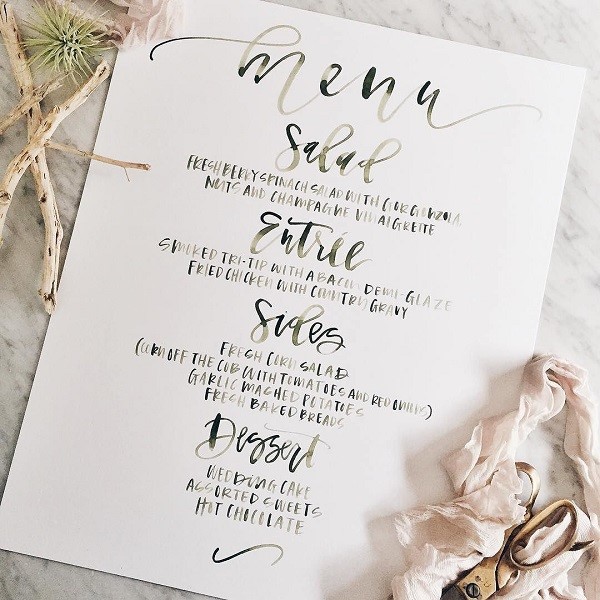 menu
Salad
FRESH BERRY SPINACH SALAD WITH GORGONZOLA,
NUTS AND CHAMPAGNE VINAIGRETTE
Entrée
SMOKED TRI-TIP WITH A BACON DEMI-GLAZE
FRIED CHICKEN WITH COUNTRY GRAVY
Sides
FRESH CORN SALAD
(CORN OFF THE COB WITH TOMATOES AND RED ONIONS)
GARLIC MASHED POTATOES
FRESH BAKED BREADS
Dessert
WEDDING CAKE
ASSORTED SWEETS
HOT CHOCOLATE